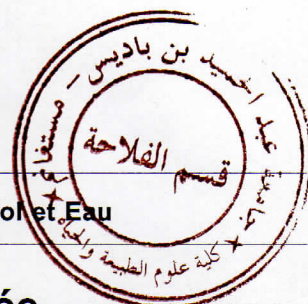 جامعة عبد الحميد بن باديس - مستغانم
كلية علوم الطبيعة والحياة
قسم الفلاحة
ol et Eau